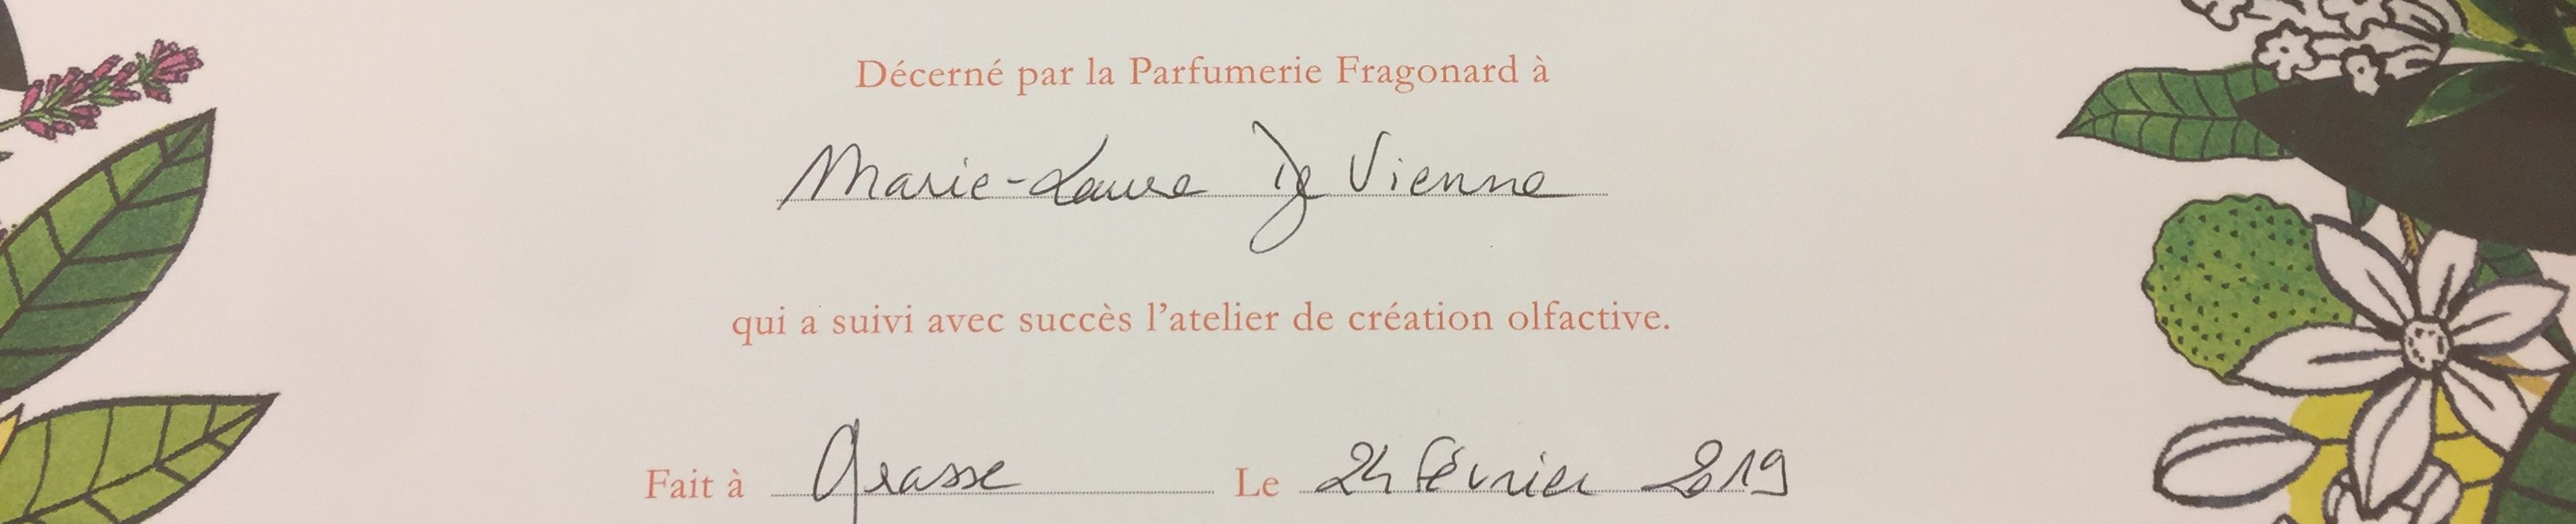 Décerné par la Parfumerie Fragonard à
Marie-Laure De Vienne
qui a suivi avec succès l'atelier de création olfactive.
Fait à Grasse Le 24 février 2019